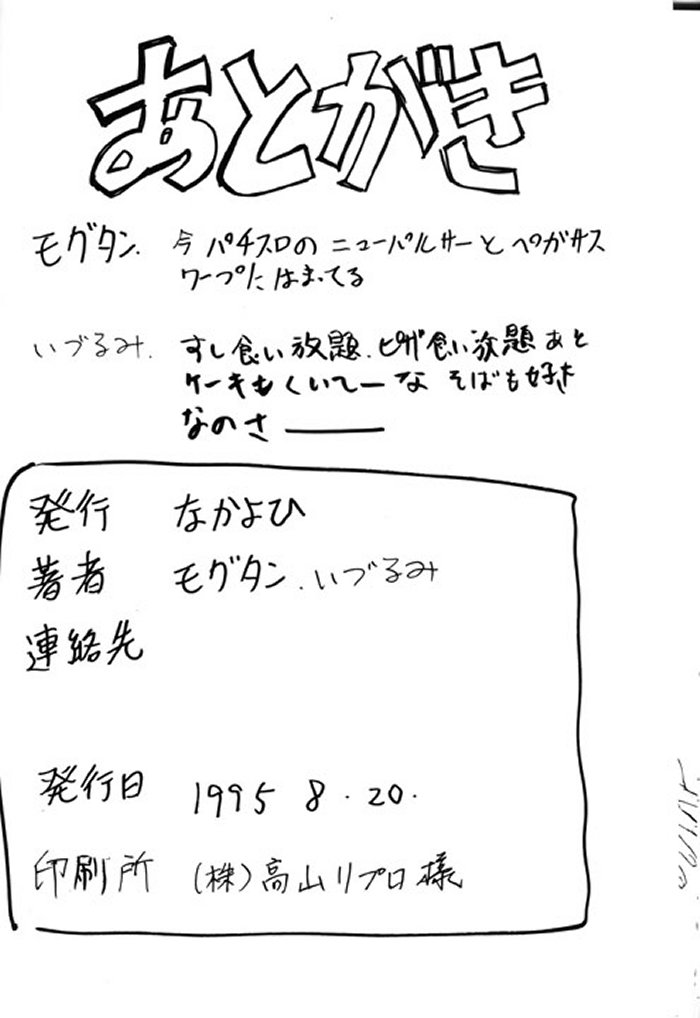 あとがき
モグタン. 今 パチスロの ニューパルサーと ペガサス
ワープに はまってる
いづるみ. すし食い放題、ピザ食い放題 あと
ケーキもくいてーな そばも好き
なのさ――
発行 なかよひ
著者 モグタン.いづるみ
連絡先
発行日 1995 8.20.
印刷所 (株)高山リプロ様